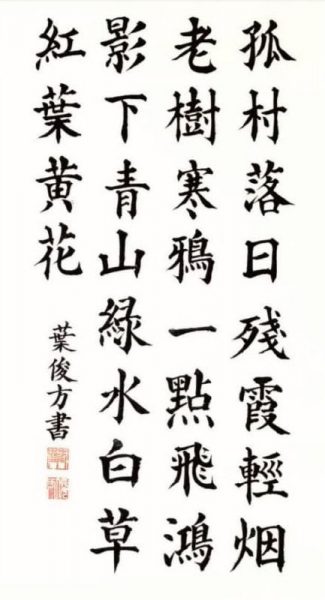 孤村落日残霞輕烟
老樹寒鴉一點飛鴻
影下青山綠水白草
紅葉黄花
葉俊方書